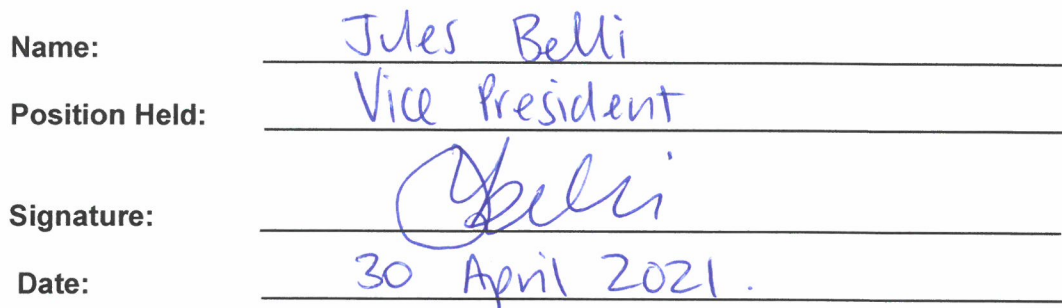 Name: Jules Belli
Position Held: Vice President
Signature: JBelli
Date: 30 April 2021.